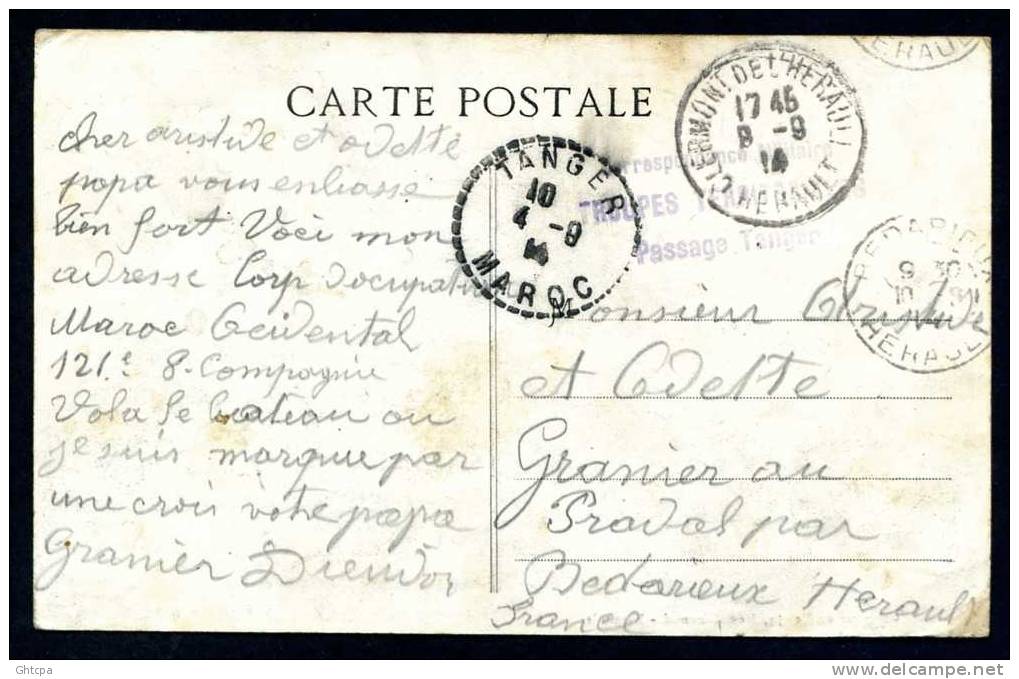 CARTE POSTALE
Cher aristide et odette
papa vous enbrasse
bien fort Voici mon
adresse Corp docupation
Maroc Ocidental
121.e 8. Compagnie
Vola le bateau ou
je suis marque par
une croix votre papa
Granier Dieudon
TANGER
10
4 -9
14
MAROC
CLERMONT DE L'HERAULT
17 45
8 -9
14
HERAULT
HERAULT
Correspondance Militaire
TROUPES
Passage Tanger
BEDARIEUX
9 30
10
HERAULT
Monsieur Aristide
et Odette
Granier au
Pradal par
Bedarieux Herault
France
Ghtcpa
www.delcampe.net